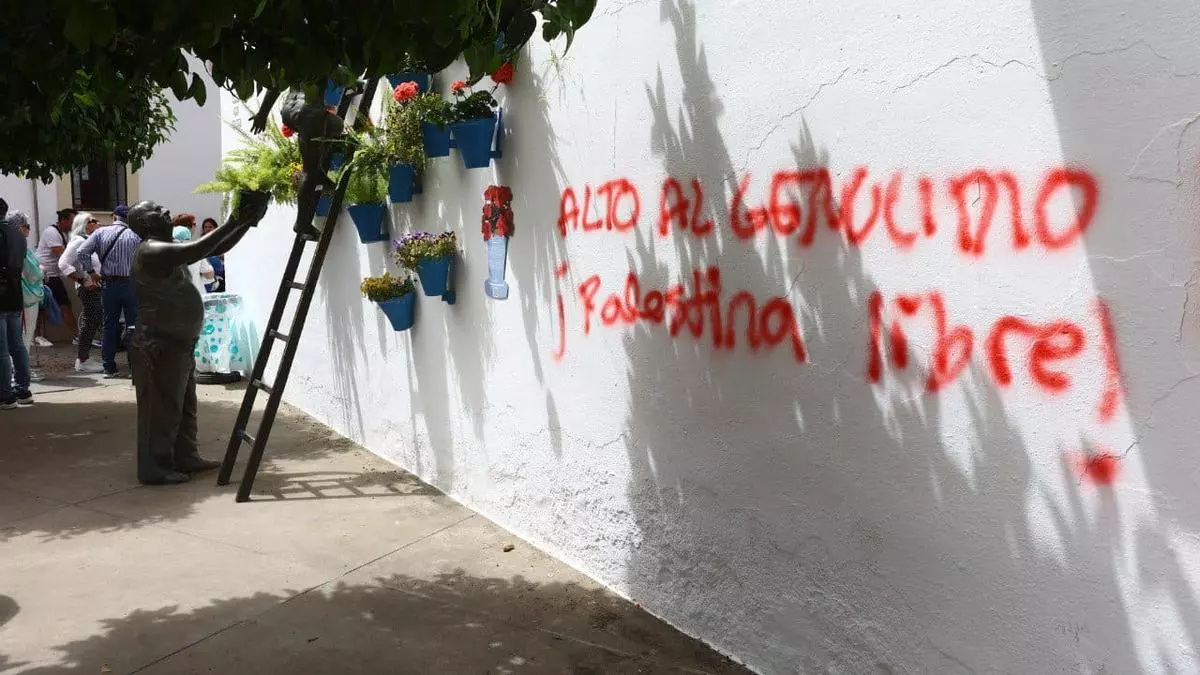 ALTO AL GENOCIDIO
¡Palestina libre!